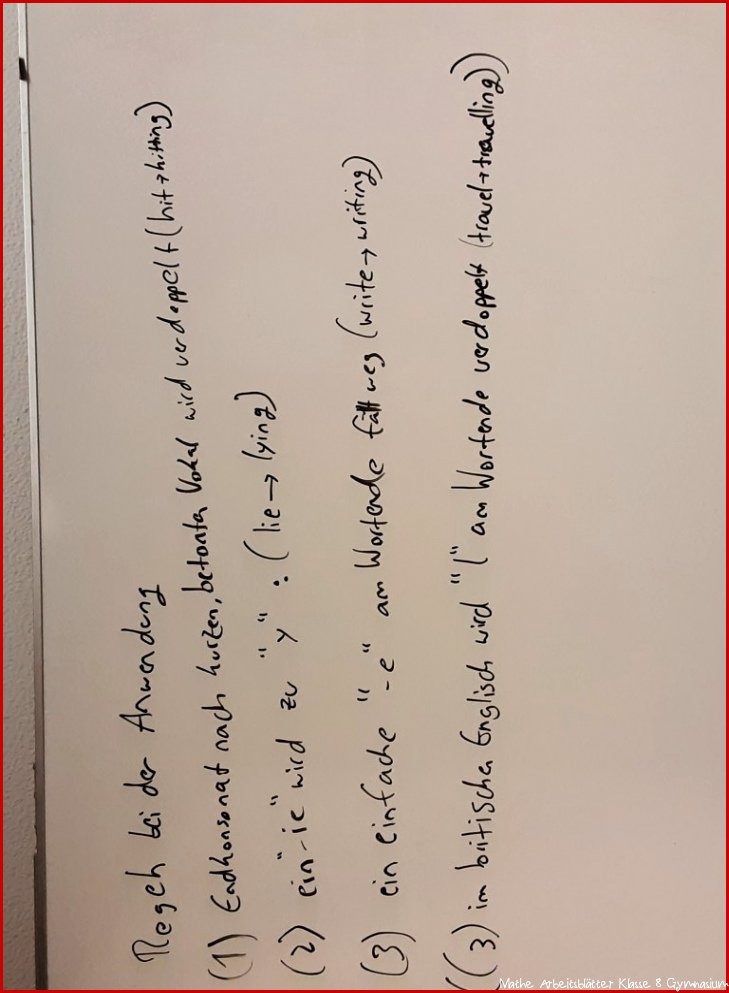 Regeln bei der Anwendung
(1) Endkonsonant nach kurzen, betonten Vokal wird verdoppelt (hit→hitting)
(2) ein "-ie" wird zu "y" : (lie → lying)
(3) ein einfache "-e" am Wortende fällt weg (write → writing)
((3) im britischen Englisch wird "l" am Wortende verdoppelt (travel→travelling))
Mathe Arbeitsblätter Klasse 8 Gymnasium